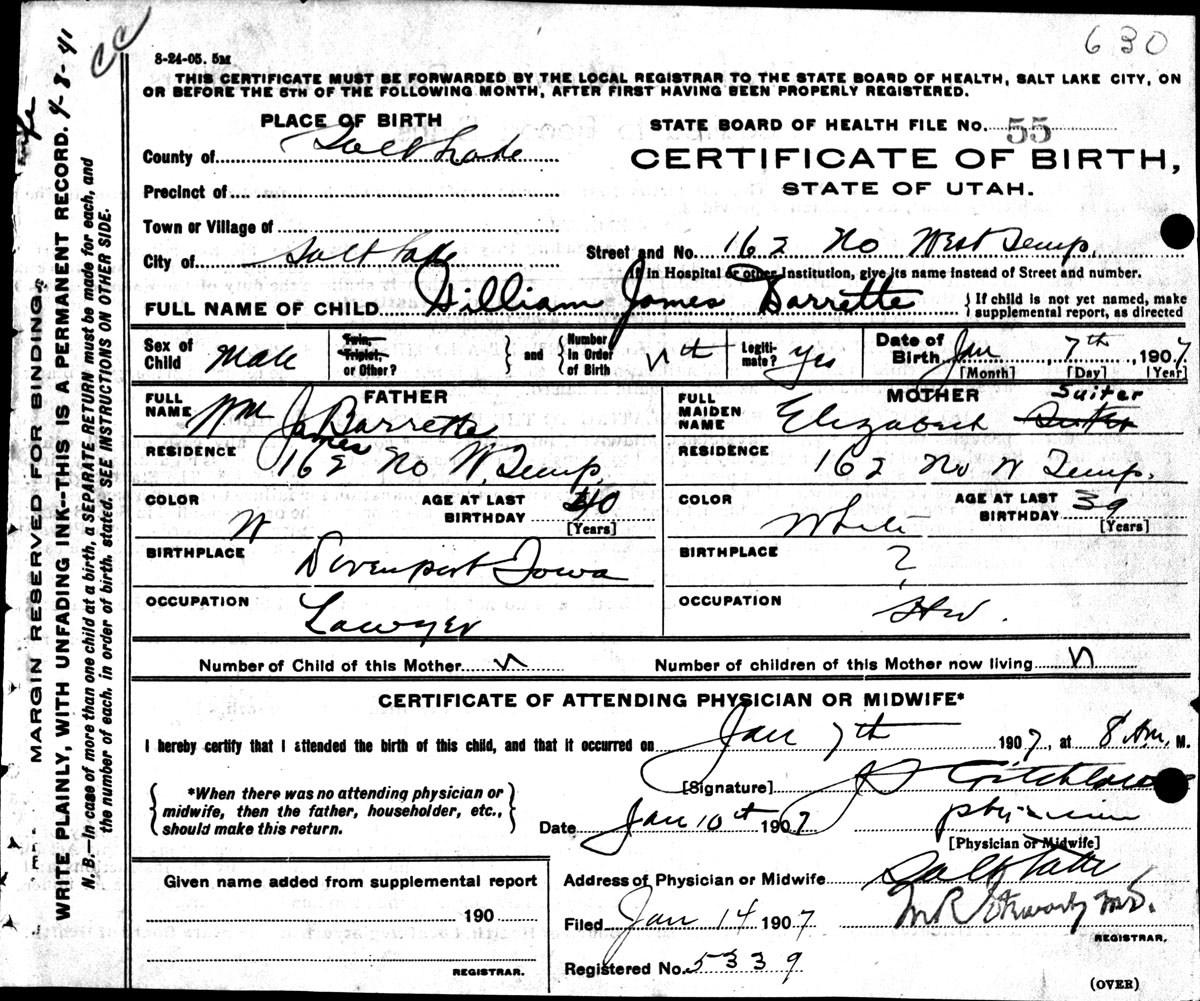 630
8-24-05. 5M
THIS CERTIFICATE MUST BE FORWARDED BY THE LOCAL REGISTRAR TO THE STATE BOARD OF HEALTH, SALT LAKE CITY, ON
OR BEFORE THE 5TH OF THE FOLLOWING MONTH, AFTER FIRST HAVING BEEN PROPERLY REGISTERED.
PLACE OF BIRTH
County of Salt Lake
Precinct of
Town or Village of
City of Salt Lake
STATE BOARD OF HEALTH FILE No. 55
CERTIFICATE OF BIRTH,
STATE OF UTAH.
Street and No. 162 No West Temp.
If in Hospital or other Institution, give its name instead of Street and number.
FULL NAME OF CHILD William James Barrette
If child is not yet named, make
supplemental report, as directed
Sex of Child Male
Twin, Triplet, or Other?
and
Number In Order of Birth Vth
Legitimate? yes
Date of Birth Jan 7th, 1907
[Month] [Day] [Year]
FATHER
FULL NAME Wm James Barrette
RESIDENCE 162 No W. Temp.
COLOR W
AGE AT LAST BIRTHDAY 40
[Years]
BIRTHPLACE Davenport Iowa
OCCUPATION Lawyer
MOTHER
FULL MAIDEN NAME Elizabeth Suiter
RESIDENCE 162 No W Temp.
COLOR White
AGE AT LAST BIRTHDAY 39
[Years]
BIRTHPLACE ?
OCCUPATION Hw.
Number of Child of this Mother V
Number of children of this Mother now living V
CERTIFICATE OF ATTENDING PHYSICIAN OR MIDWIFE*
I hereby certify that I attended the birth of this child, and that it occurred on Jan 7th 1907, at 8 A.M. M.
*When there was no attending physician or
midwife, then the father, householder, etc.,
should make this return.
[Signature] Critchlow
Date Jan 10th 1907
physician
[Physician or Midwife]
Given name added from supplemental report
190
REGISTRAR.
Address of Physician or Midwife Salt Lake
Filed Jan 14 1907
M R Stewart M.D.
REGISTRAR.
Registered No. 5339
(OVER)
MARGIN RESERVED FOR BINDING.
WRITE PLAINLY, WITH UNFADING INK--THIS IS A PERMANENT RECORD. 4-3-41
N. B.—In case of more than one child at a birth, a SEPARATE RETURN must be made for each, and
the number of each, in order of birth, stated. SEE INSTRUCTIONS ON OTHER SIDE.
CC